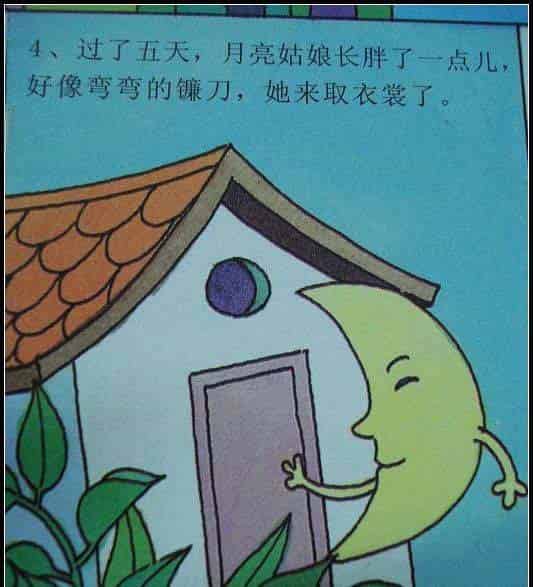 4、过了五天，月亮姑娘长胖了一点儿，
好像弯弯的镰刀，她来取衣裳了。